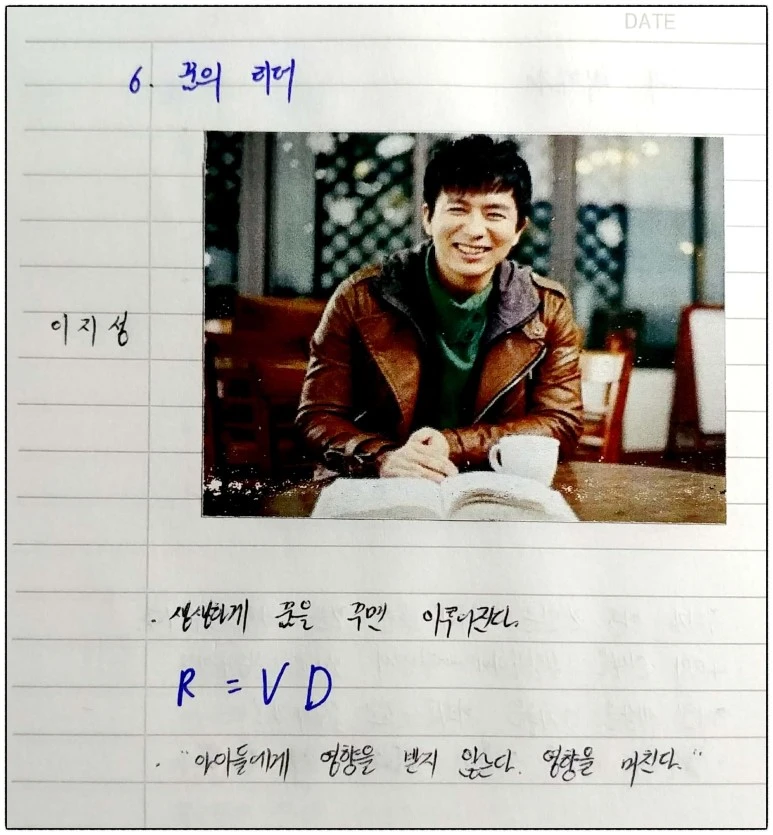 DATE
6. 꿈의 리더
이지성
· 생생하게 꿈을 꾸면 이루어진다.
R = V D
· "아이들에게 영향을 받지 않는다. 영향을 미친다."